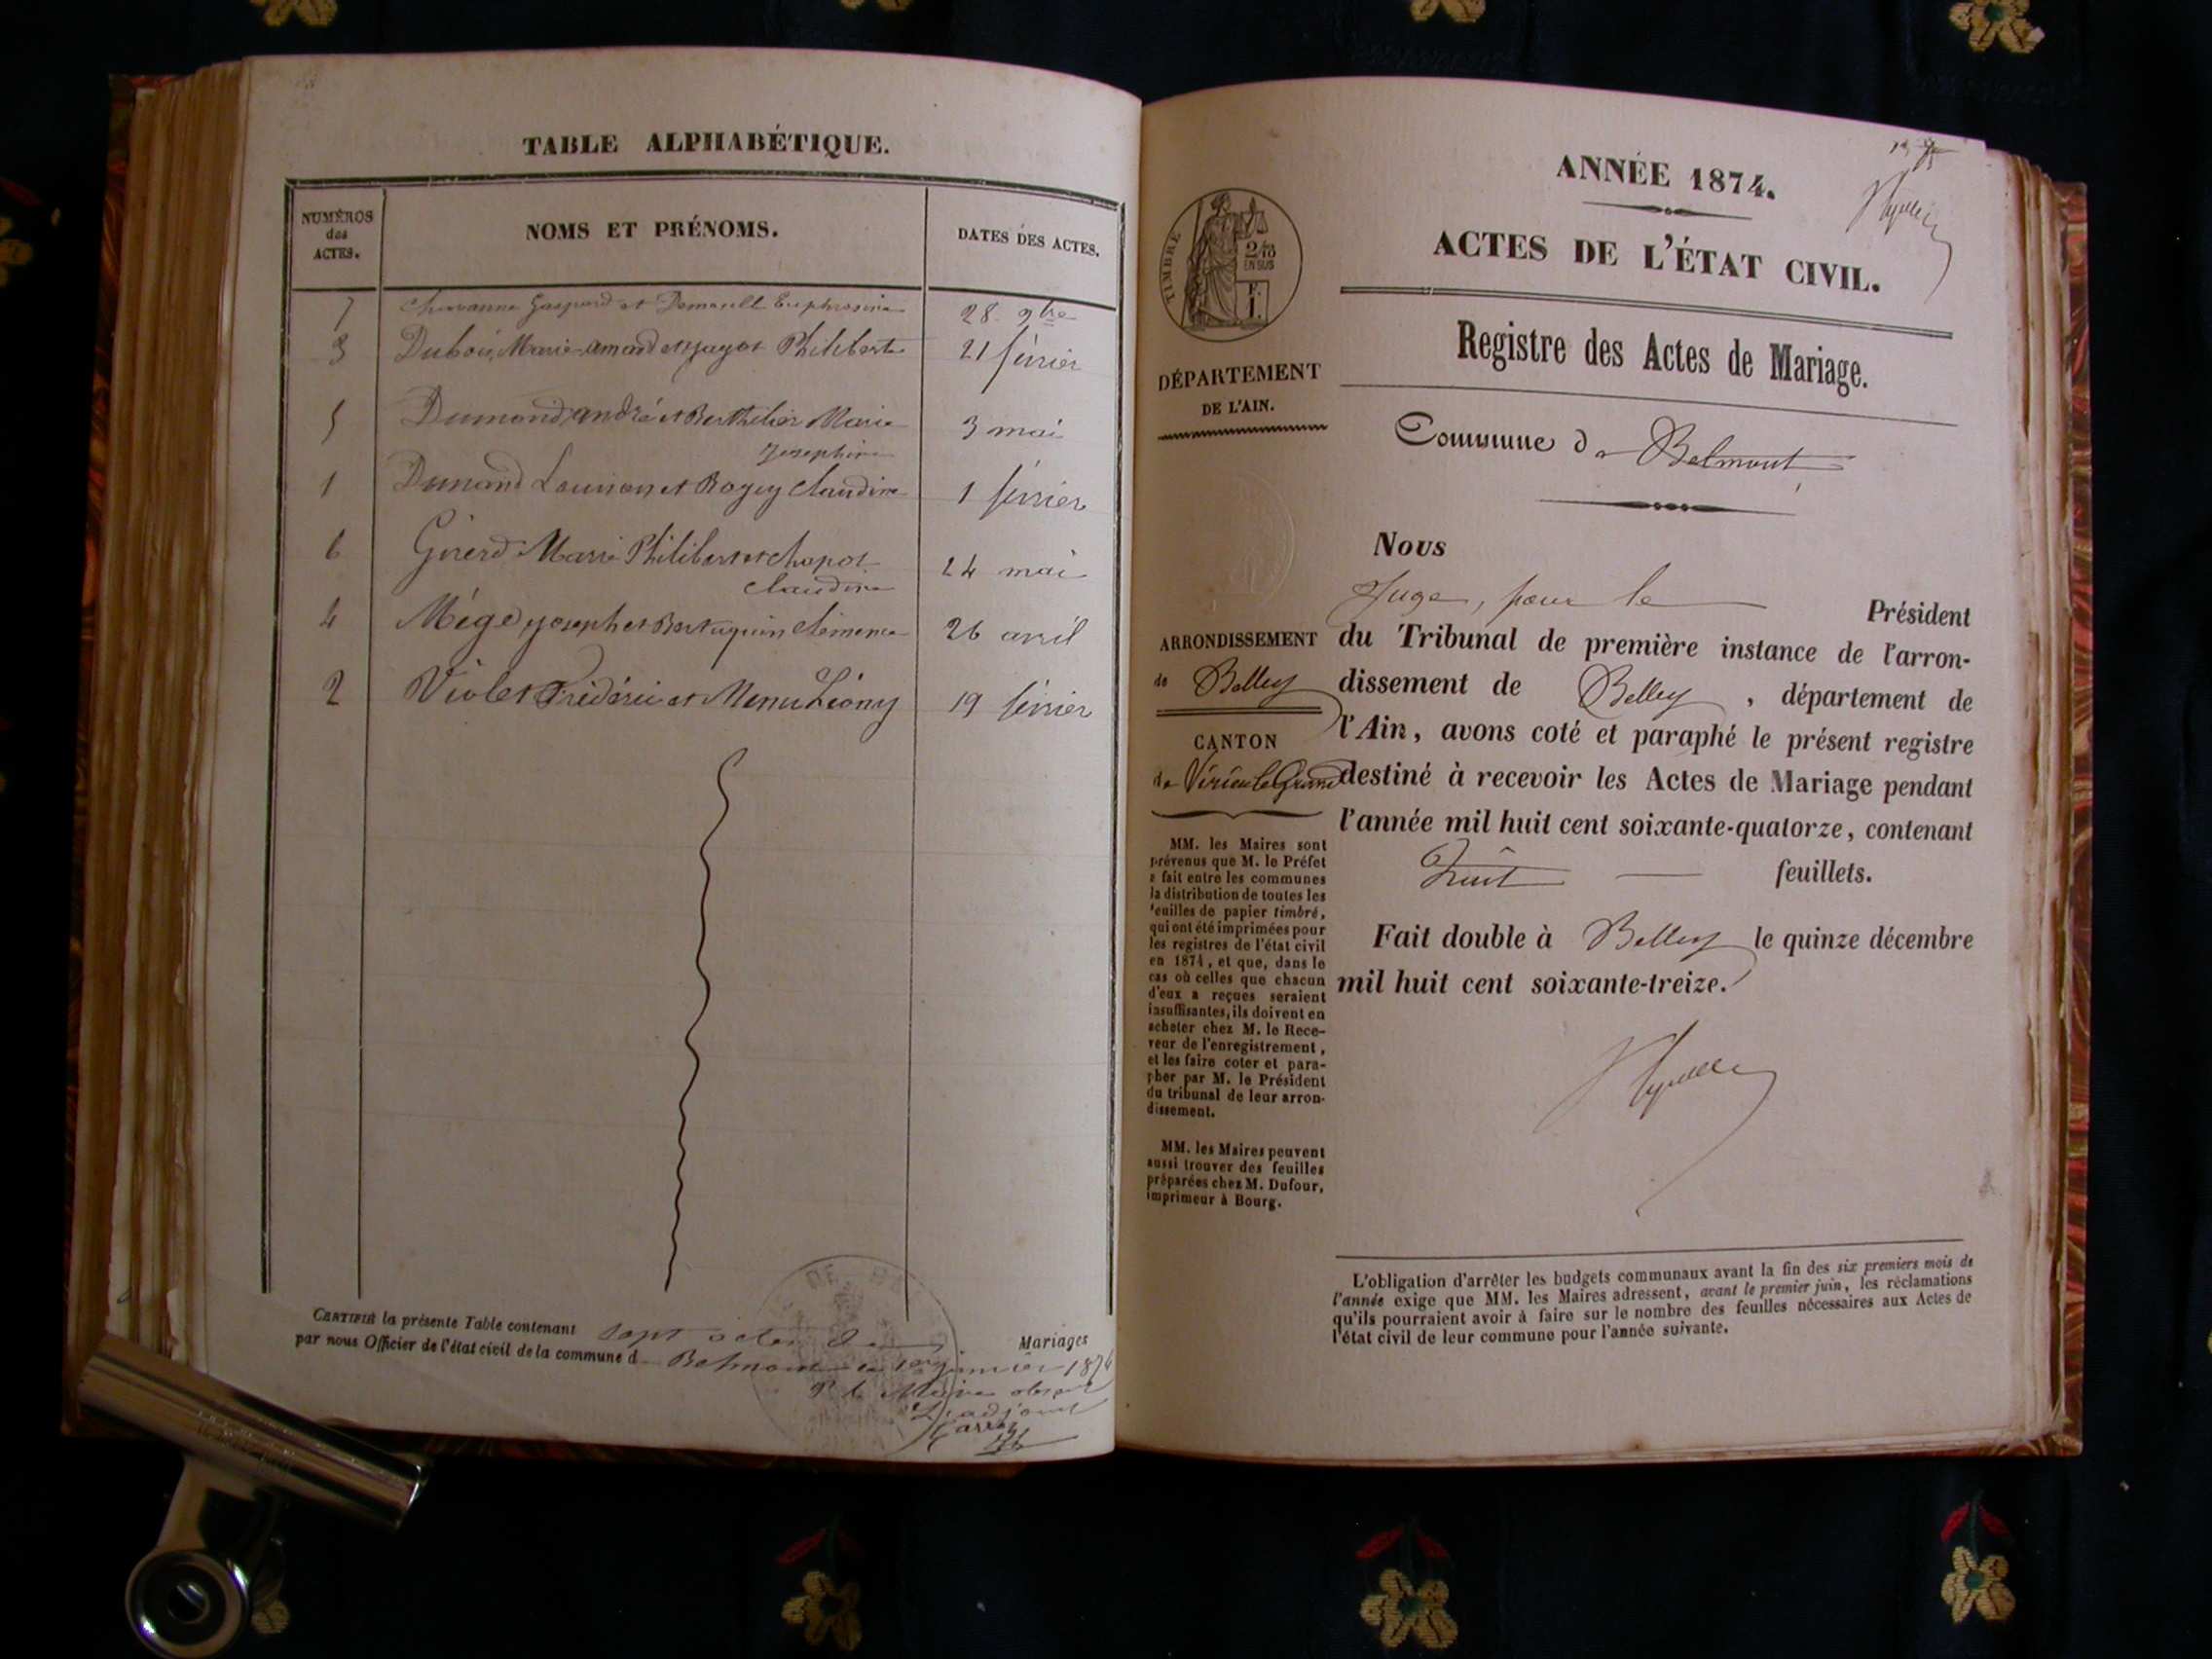 TABLE ALPHABÉTIQUE.
NUMÉROS
des
ACTES.
NOMS ET PRÉNOMS.
DATES DES ACTES.
7 Gaspard et Euphrosine 28 9bre
3 Dubois Marie amand et Philiberte 21 février
5 Dumond andré et Berthelier Marie 3 mai
Josephine
1 Dunand et Rogey Claudine 1 février
6 Girerd Marie Philibert et Chapot 24 mai
Claudine
4 Mége joseph et clémence 26 avril
2 Violet Frédéric et Menu Léony 19 février
CERTIFIÉ la présente Table contenant sept actes de Mariages
par nous Officier de l'état civil de la commune de Belmont janvier 187
P. le Maire absent
L'adjoint
ANNÉE 1874.
ACTES DE L'ÉTAT CIVIL.
Registre des Actes de Mariage.
Commune de Belmont
TIMBRE
2/10
EN SUS
F.
1.
DÉPARTEMENT
DE L'AIN.
ARRONDISSEMENT
de Belley
CANTON
de Virieu le Grand
MM. les Maires sont
prévenus que M. le Préfet
a fait entre les communes
la distribution de toutes les
feuilles de papier timbré,
qui ont été imprimées pour
les registres de l'état civil
en 1874, et que, dans le
cas où celles que chacun
d'eux a reçues seraient
insuffisantes, ils doivent en
acheter chez M. le Rece-
veur de l'enregistrement,
et les faire coter et para-
pher par M. le Président
du tribunal de leur arron-
dissement.
MM. les Maires peuvent
aussi trouver des feuilles
préparées chez M. Dufour,
imprimeur à Bourg.
Nous
Juge, pour le Président
du Tribunal de première instance de l'arron-
dissement de Belley, département de
l'Ain, avons coté et paraphé le présent registre
destiné à recevoir les Actes de Mariage pendant
l'année mil huit cent soixante-quatorze, contenant
huit feuillets.
Fait double à Belley le quinze décembre
mil huit cent soixante-treize.
L'obligation d'arrêter les budgets communaux avant la fin des six premiers mois de
l'année exige que MM. les Maires adressent, avant le premier juin, les réclamations
qu'ils pourraient avoir à faire sur le nombre des feuilles nécessaires aux Actes de
l'état civil de leur commune pour l'année suivante.